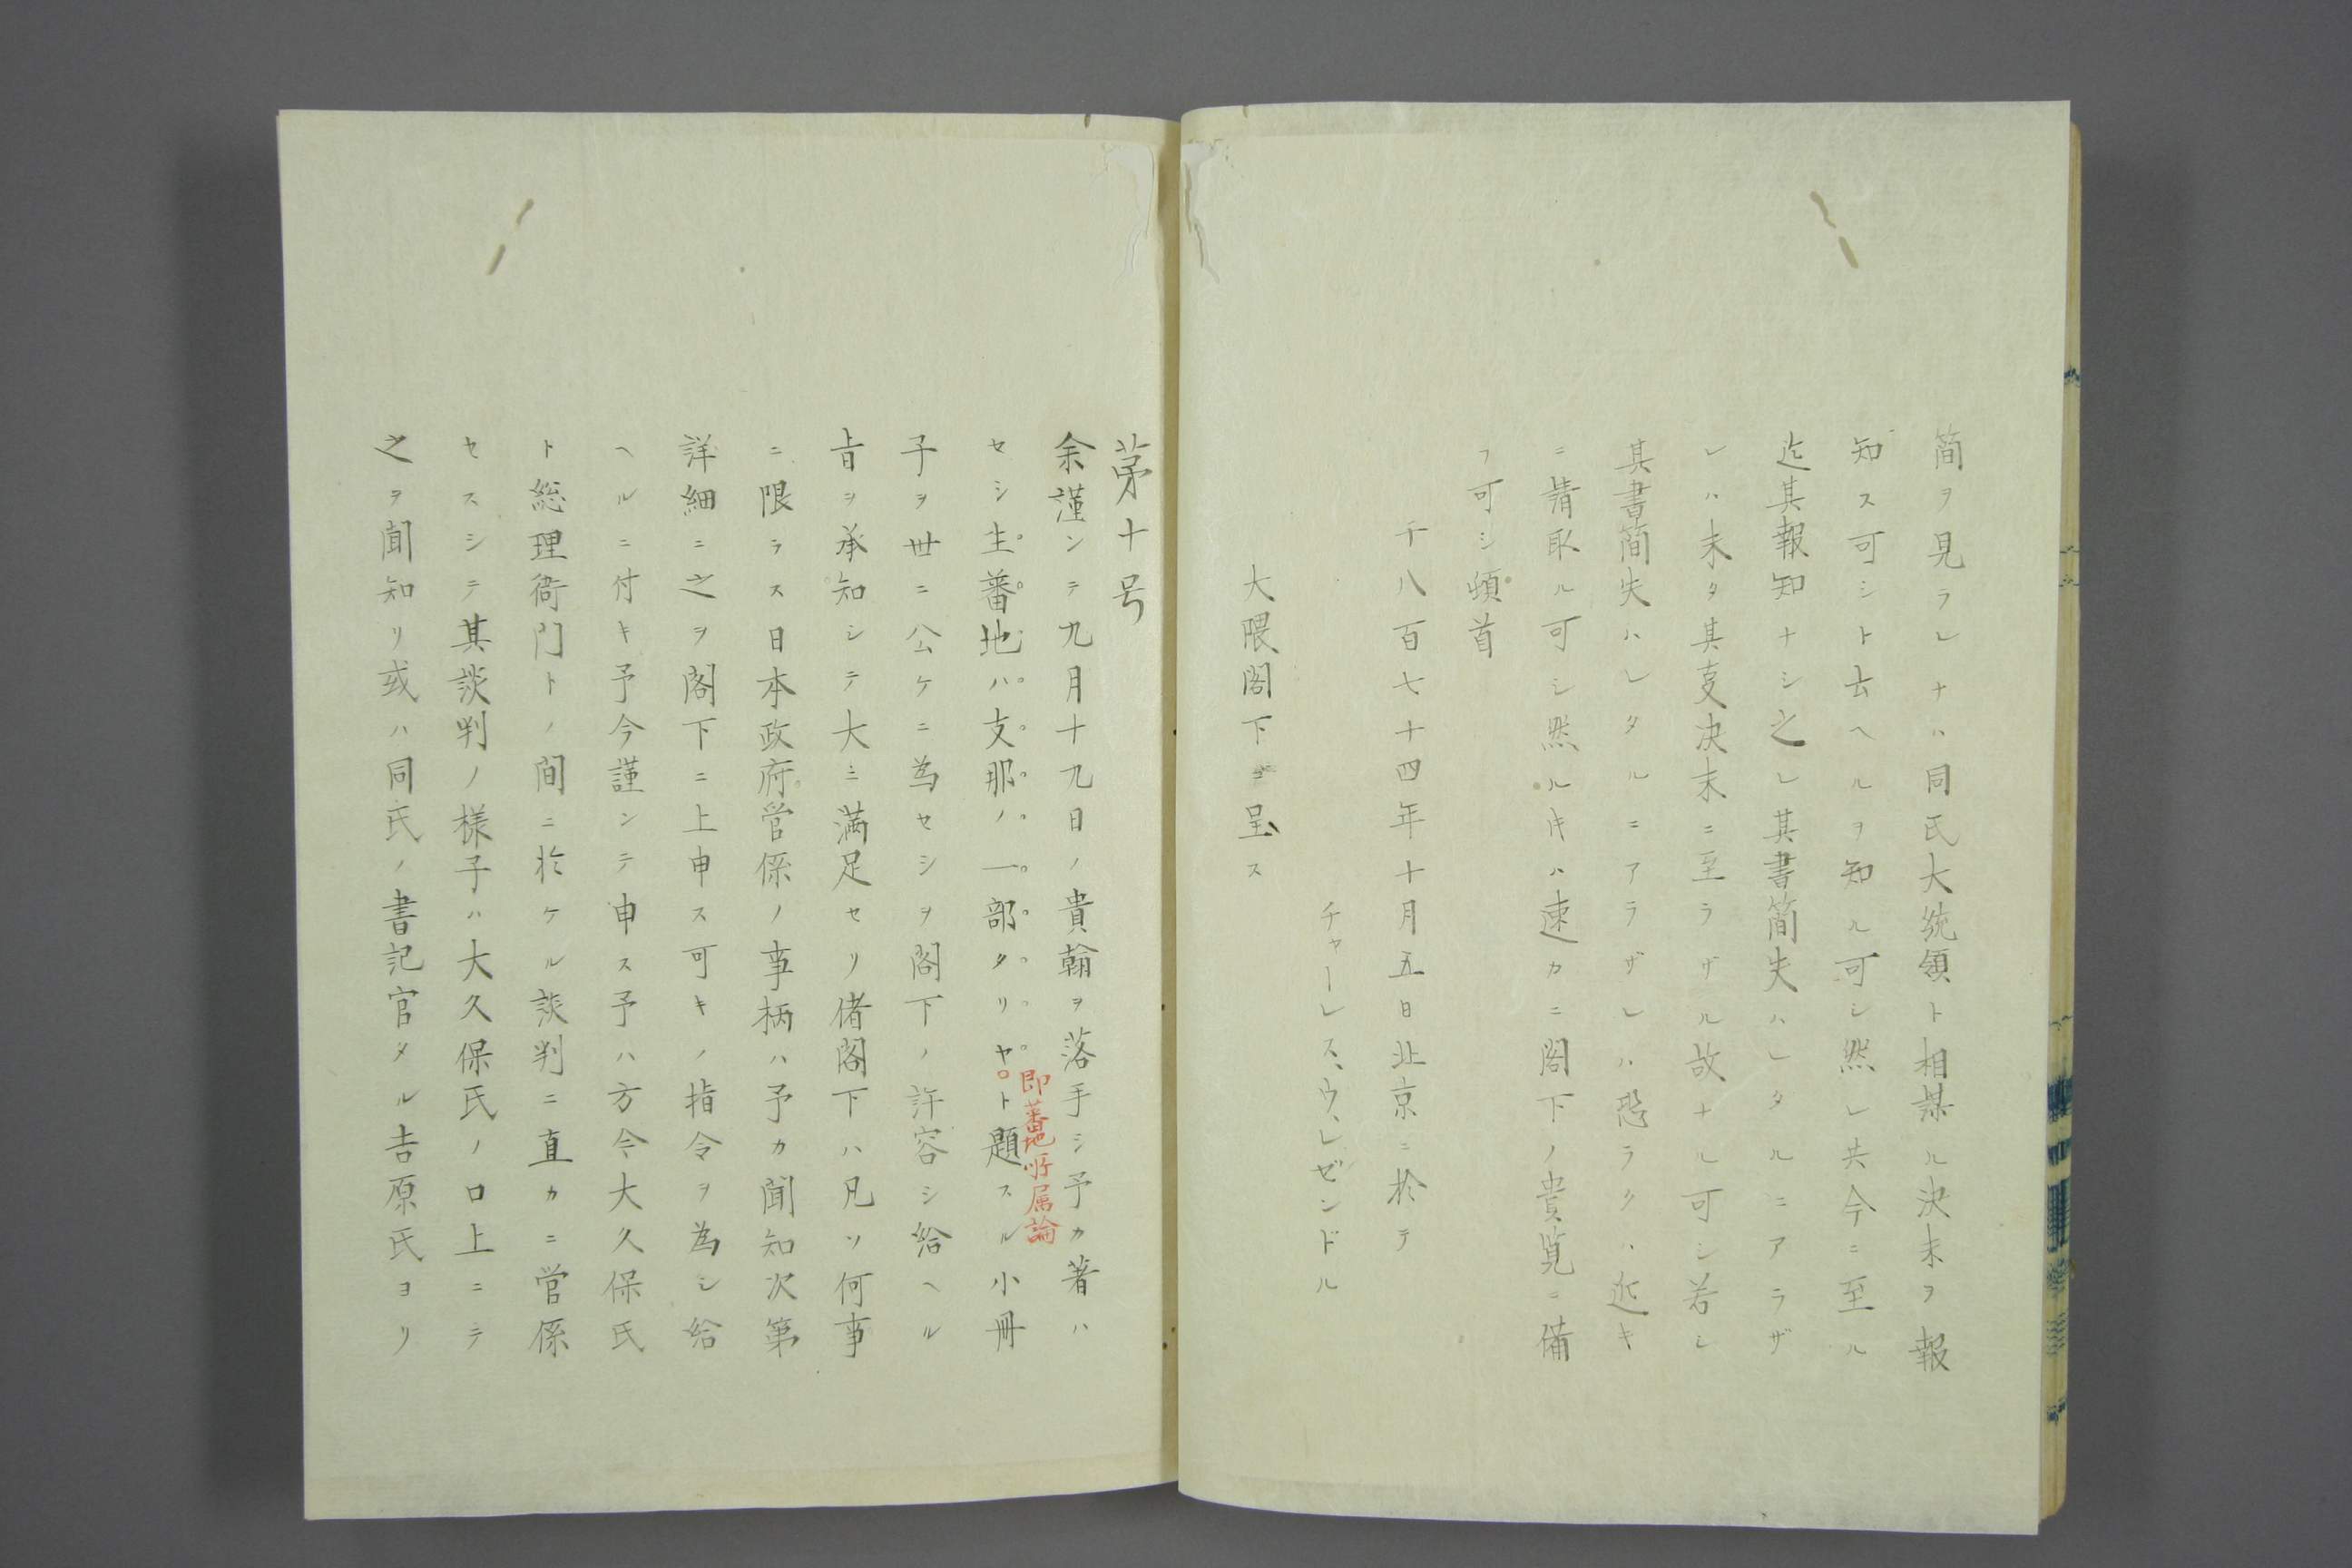 簡ヲ見ラレナハ同氏大統領ト相謀ル決末ヲ報
知ス可シト云ヘルヲ知ル可シ然レ共今ニ至ル
迄其報知ナシ之レ其書簡失ハレタルニアラザ
レハ未タ其支决末ニ至ラザル故ナル可シ若シ
其書簡失ハレタルニアラザレハ恐ラクハ近キ
ニ請取ル可シ然ルキハ速カニ閣下ノ貴覧ニ備
フ可シ頓首
千八百七十四年十月五日北京ニ於テ
チャーレス、ウ、レゼンドル
大隈閣下ヘ呈ス
苐十号
余謹ンテ九月十九日ノ貴翰ヲ落手シ予カ著ハ
セシ生蕃地ハ支那ノ一部タリヤ。ト題スル小冊
即蕃地所属論
子ヲ世ニ公ケニ為セシヲ閣下ノ許容シ給ヘル
旨ヲ承知シテ大ニ満足セリ偖閣下ハ凡ソ何事
ニ限ラス日本政府管係ノ事柄ハ予カ聞知次第
詳細ニ之ヲ閣下ニ上申ス可キノ指令ヲ為シ給
ヘルニ付キ予今謹ンテ申ス予ハ方今大久保氏
ト総理衙門トノ間ニ於ケル談判ニ直カニ管係
セスシテ其談判ノ様子ハ大久保氏ノ口上ニテ
之ヲ聞知リ或ハ同氏ノ書記官タル吉原氏ヨリ